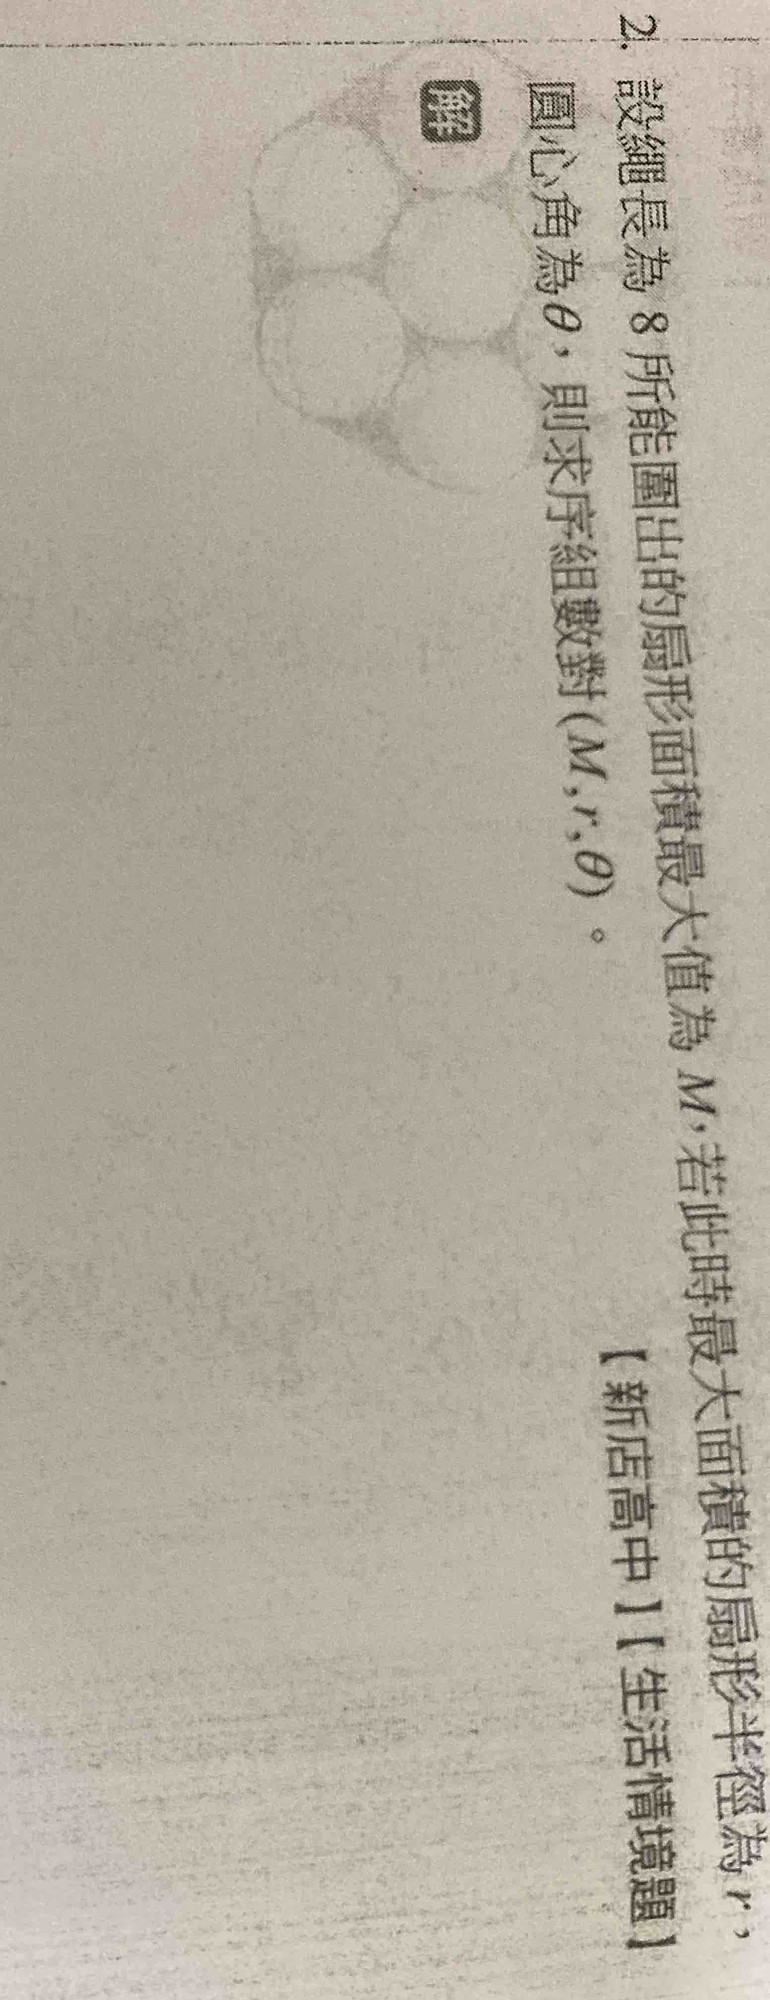 2. 設繩長為 8 所能圍出的扇形面積最大值為 M,若此時最大面積的扇形半徑為 r,
圓心角為θ,則求序組數對(M,r,θ)。
【新店高中】【生活情境題】
解